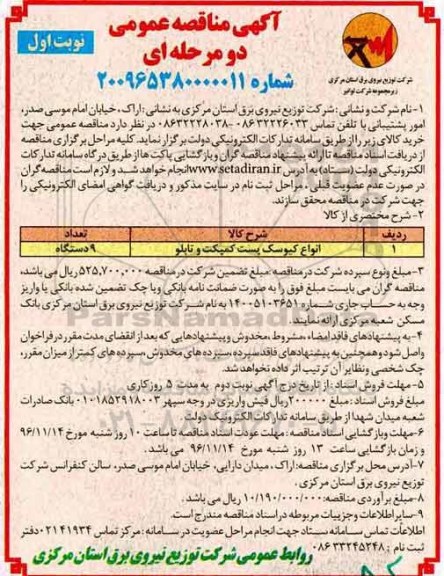 آگهی مناقصه عمومی
دو مرحله ای
نوبت اول
شماره ۲۰۰۹۶۵۳۸۰۰۰۰۰۱۱
شرکت توزیع نیروی برق استان مرکزی
زیرمجموعه شرکت توانیر
۱-نام شرکت و نشانی: شرکت توزیع نیروی برق استان مرکزی به نشانی: اراک، خیابان امام موسی صدر،
امور پشتیبانی با تلفن تماس ۰۸۶۳۲۲۲۶۰۳۳ -۰۸۶۳۲۲۲۸۰۳۸ در نظر دارد مناقصه عمومی جهت
خرید کالای زیر را از طریق سامانه تدارکات الکترونیکی دولت برگزار نماید. کلیه مراحل برگزاری مناقصه
از دریافت اسناد مناقصه تا ارائه پیشنهاد مناقصه گران و بازگشایی پاکت ها از طریق درگاه سامانه تدارکات
الکترونیکی دولت (ستاد) به آدرس www.setadiran.ir انجام خواهد شد و لازم است مناقصه گران
در صورت عدم عضویت قبلی ، مراحل ثبت نام در سایت مذکور و دریافت گواهی امضای الکترونیکی را
جهت شرکت در مناقصه محقق سازند.
۲- شرح مختصری از کالا
ردیف شرح کالا تعداد
۱ انواع کیوسک پست کمپکت و تابلو ۹ دستگاه
۳-مبلغ ونوع سپرده شرکت در مناقصه: مبلغ تضمین شرکت در مناقصه ۵۲۵,۷۰۰,۰۰۰ ریال می باشد،
مناقصه گران می بایست مبلغ فوق را به صورت ضمانت نامه بانکی و یا چک تضمین شده بانکی یا واریز
وجه به حساب جاری شماره ۱۴۰۰۵۱۰۳۶۵۱ به نام شرکت توزیع نیروی برق استان مرکزی بانک
مسکن شعبه مرکزی ارائه نمایند.
۴- به پیشنهادهای فاقد امضاء، مشروط، مخدوش و پیشنهادهایی که بعد از انقضای مدت مقرر در فراخوان
واصل شود و همچنین به پیشنهادهای فاقد سپرده، سپرده های مخدوش، سپرده های کمتر از میزان مقرر،
چک شخصی و نظایر آن ترتیب اثر داده نخواهد شد.
۵- مهلت فروش اسناد : از تاریخ درج آگهی نوبت دوم به مدت ۵ روز کاری
مبلغ فروش اسناد : مبلغ ۲۰۰۰۰۰ ریال فیش واریزی در وجه سپهر ۰۱۰۱۸۵۲۹۱۸۰۰۳ بانک صادرات
شعبه میدان شهدا از طریق سامانه تدارکات الکترونیک دولت .
۶-مهلت و بازگشایی اسناد مناقصه : مهلت عودت اسناد مناقصه تا ساعت ۱۰ روز شنبه مورخ ۹۶/۱۱/۱۴
و زمان بازگشایی ساعت ۱۳ روز شنبه مورخ ۹۶/۱۱/۱۴ می باشد .
۷-آدرس محل برگزاری مناقصه: اراک، میدان دارایی، خیابان امام موسی صدر، سالن کنفرانس شرکت
توزیع نیروی برق استان مرکزی .
۸-مبلغ برآوردی مناقصه: ۱۰/۱۹۰/۰۰۰/۰۰۰ ریال می باشد .
۹- سایر اطلاعات و جزییات مربوطه در اسناد مناقصه مندرج است.
اطلاعات تماس سامانه ستاد جهت انجام مراحل عضویت در سامانه : مرکز تماس ۰۲۱۴۱۹۳۴ دفتر
ثبت نام : ۰۸۶۳۳۲۴۵۲۴۸
روابط عمومی شرکت توزیع نیروی برق استان مرکزی